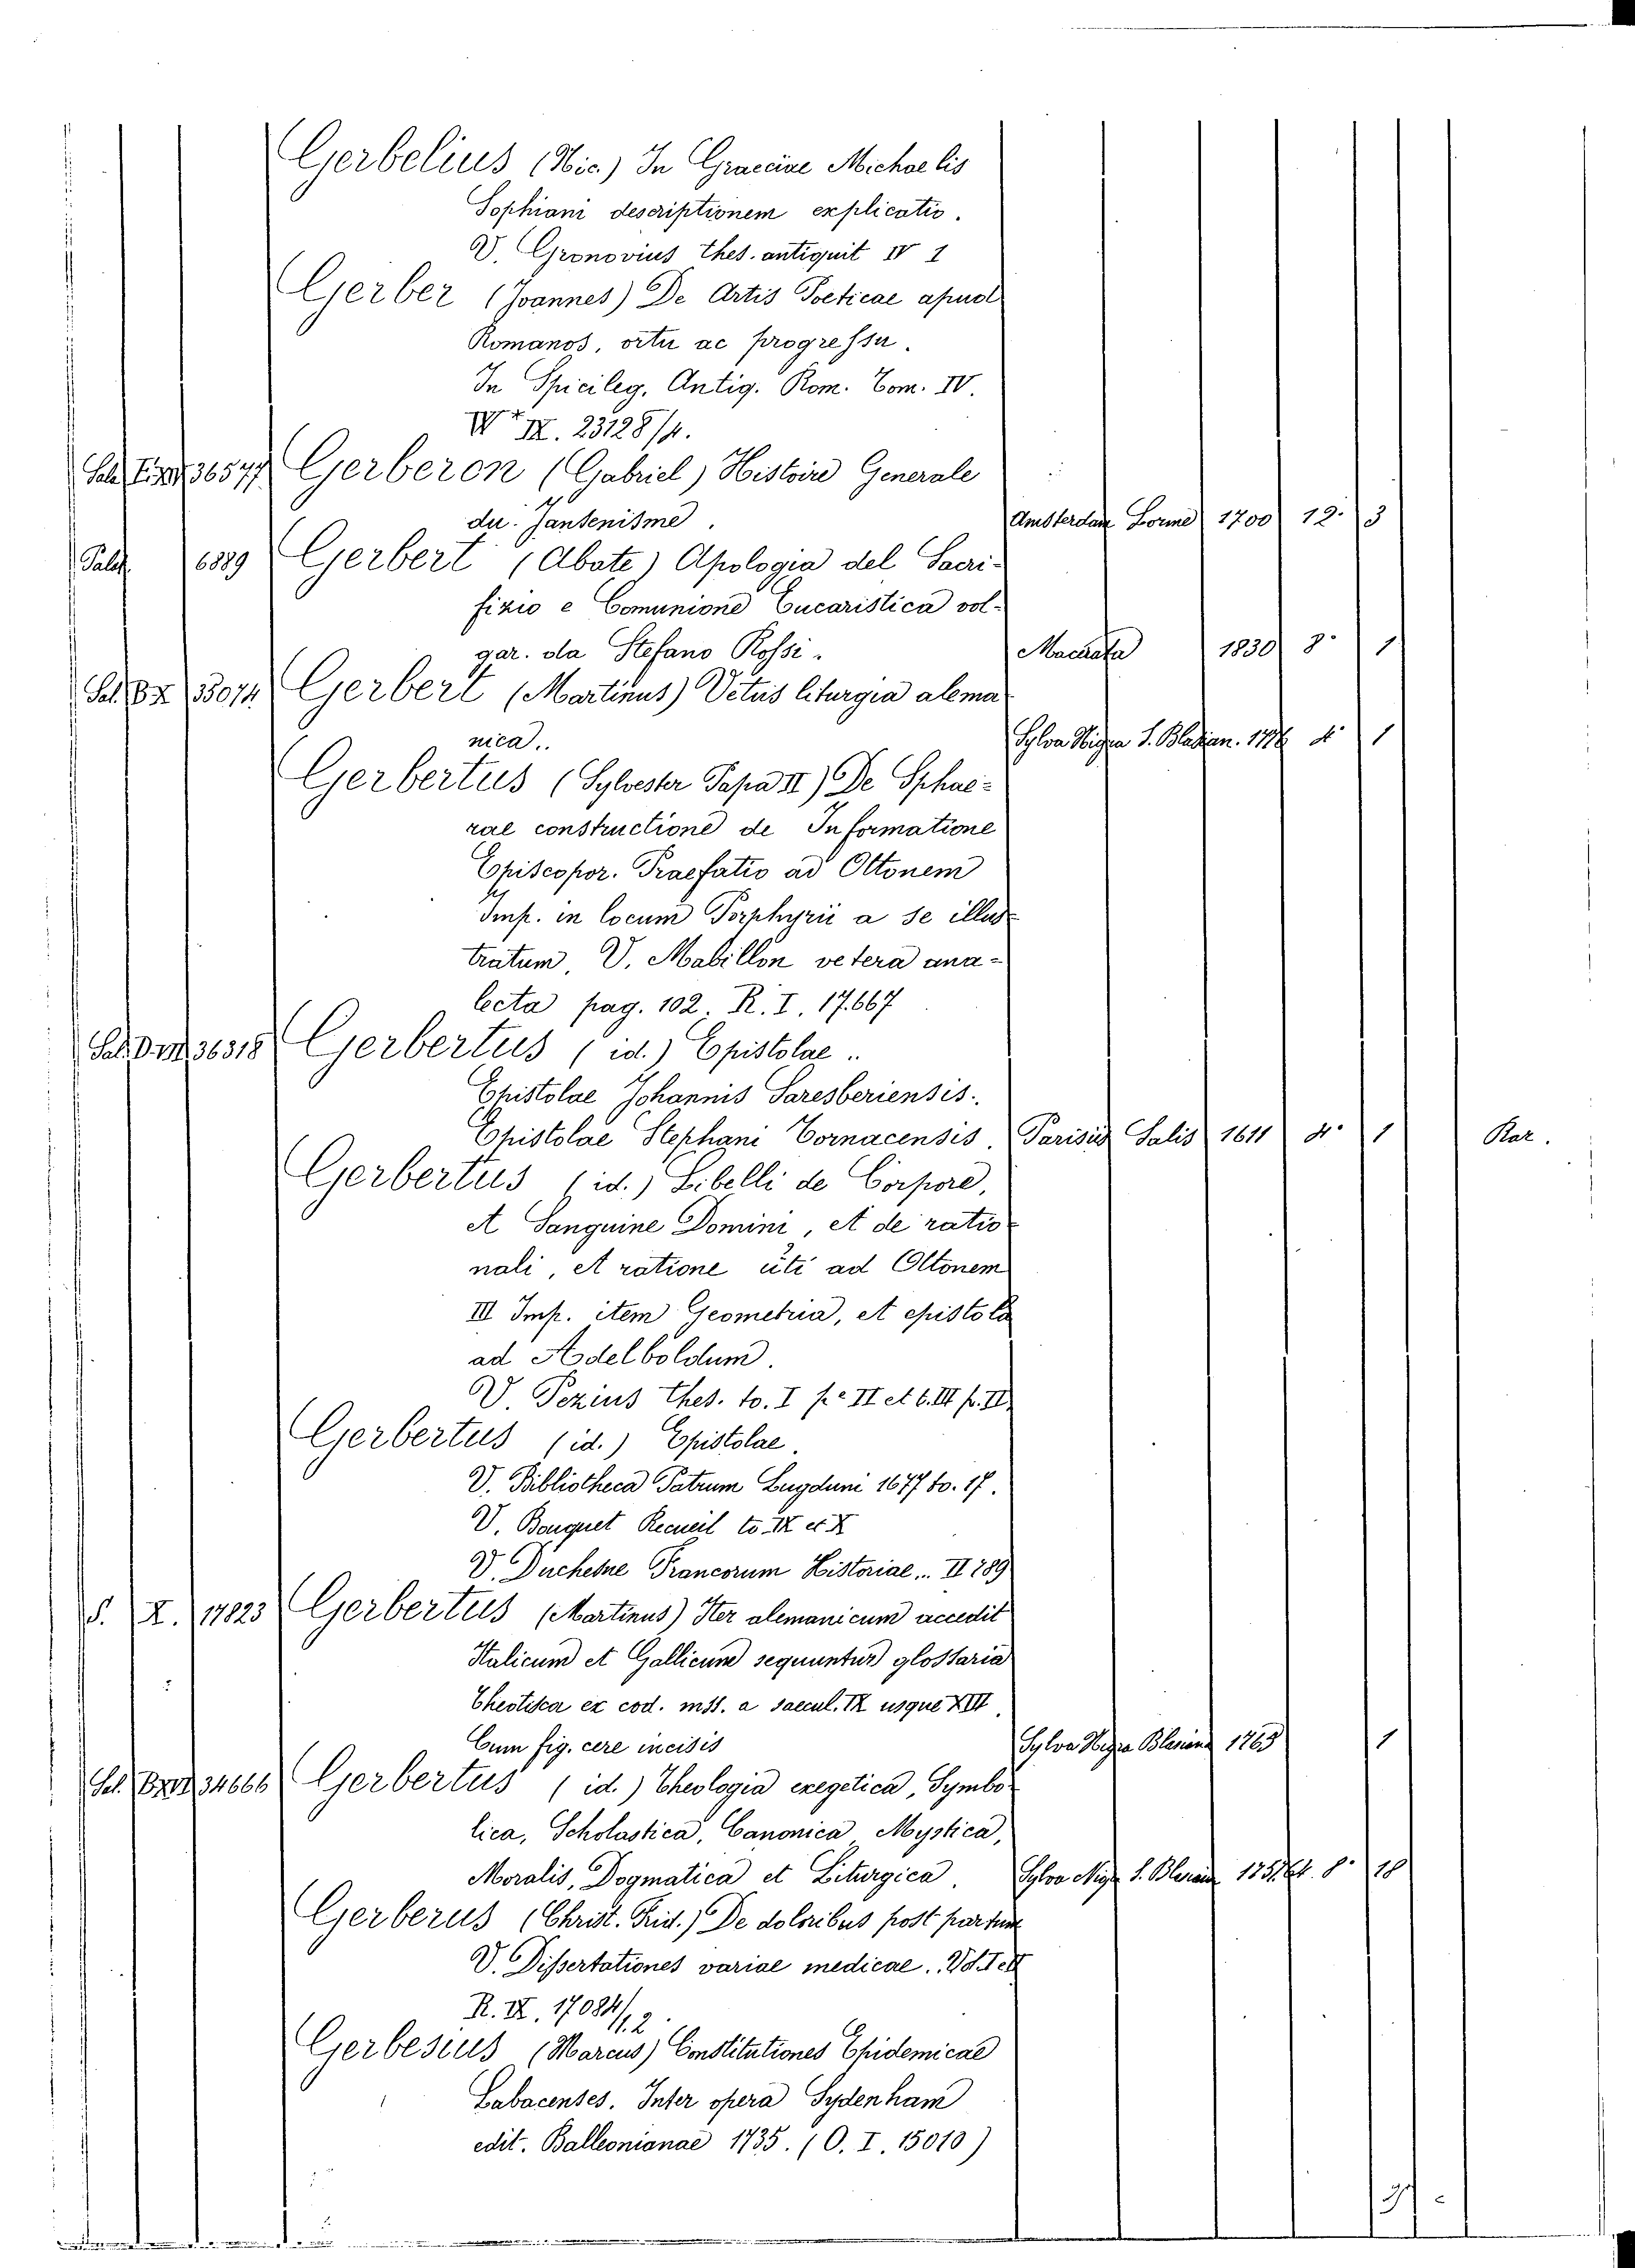 Gerbelius (Nic.) In Graeciae Michaelis
Sophiani descriptionem explicatio.
V. Gronovius thes. antiquit IV 1
Gerber (Joannes) De Artis Poeticae apud
Romanos, ortu ac progressu.
In Spicileg. Antig. Rom. Tom. IV.
IX. 23128/4.
36577 Gerberon (Gabriel) Histoire Generale
du Jansenisme. Amsterdam Lorme 1700 12. 3
Palch. 6889 Gerbert (Abate) Apologia del Sacri-
fizio e Comunione Eucaristica vol-
gar. da Stefano Rossi. Macerata 1830 8. 1
Sal. BX 33074 Gerbert (Martinus) Vetus liturgia alema
nica.. Sylva Nigra S. Blasian. 1776 4. 1
Gerbertus (Sylvester Papa II) De Sphae-
rae constructione de Informatione
Episcopor. Praefatio ad Ottonem
Imp. in locum Porphyrii a se illus-
tratum, V. Mabillon vetera ana-
lecta pag. 102. R. I. 17.667
36318 Gerbertus (id.) Epistolae..
Epistolae Johannis Saresberiensis.
Epistolae Stephani Tornacensis. Parisiis Salis 1611 4. 1 Rar.
Gerbertus (id.) Libelli de Corpore,
et Sanguine Domini, et de ratio-
nali, et ratione uti ad Ottonem
III Imp. item Geometria, et epistola
ad Adelboldum.
V. Pezius thes. to. I p.e II et t. III p. II.
Gerbertus (id.) Epistolae.
V. Bibliotheca Patrum Lugduni 1677 to. 17.
V. Bouquet Recueil to IX et X
V. Duchesne Francorum Historiae... II 789
S. X. 17823 Gerbertus (Martinus) Iter alemanicum accedit
Italicum et Gallicum sequuntur glossaria
Theotisca ex cod. mss. a saecul. IX usque XIII.
Cum fig. aere incisis Sylva Nigra Blasiana 1765 1
Sal. 34666 Gerbertus (id.) Theologia exegetica, Symbo-
lica, Scholastica, Canonica, Mystica,
Moralis, Dogmatica et Liturgica. Sylva Nigr. S. Blasian 1757.64. 8. 18
Gerberus (Christ. Frid.) De doloribus post partum
V. Dissertationes variae medicae.. Vol. I et II
R. IX. 17084/1.2.
Gerbesius (Marcus) Constitutiones Epidemicae
Labacenses. Inter opera Sydenham
edit. Balleonianae 1735. (O. I. 15010)